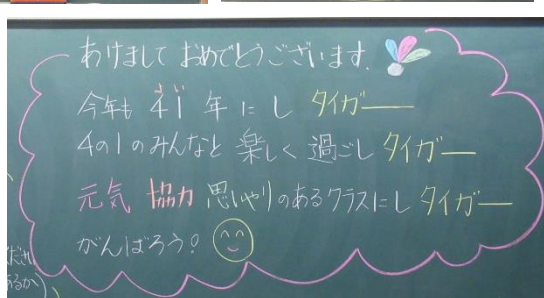 あけまして おめでとうございます。
今年も 41 年 に し タイガー
よい
4の1のみんなと 楽しく 過ごし タイガー
元気 協力 思いやりのあるクラスにし タイガー
がんばろう?